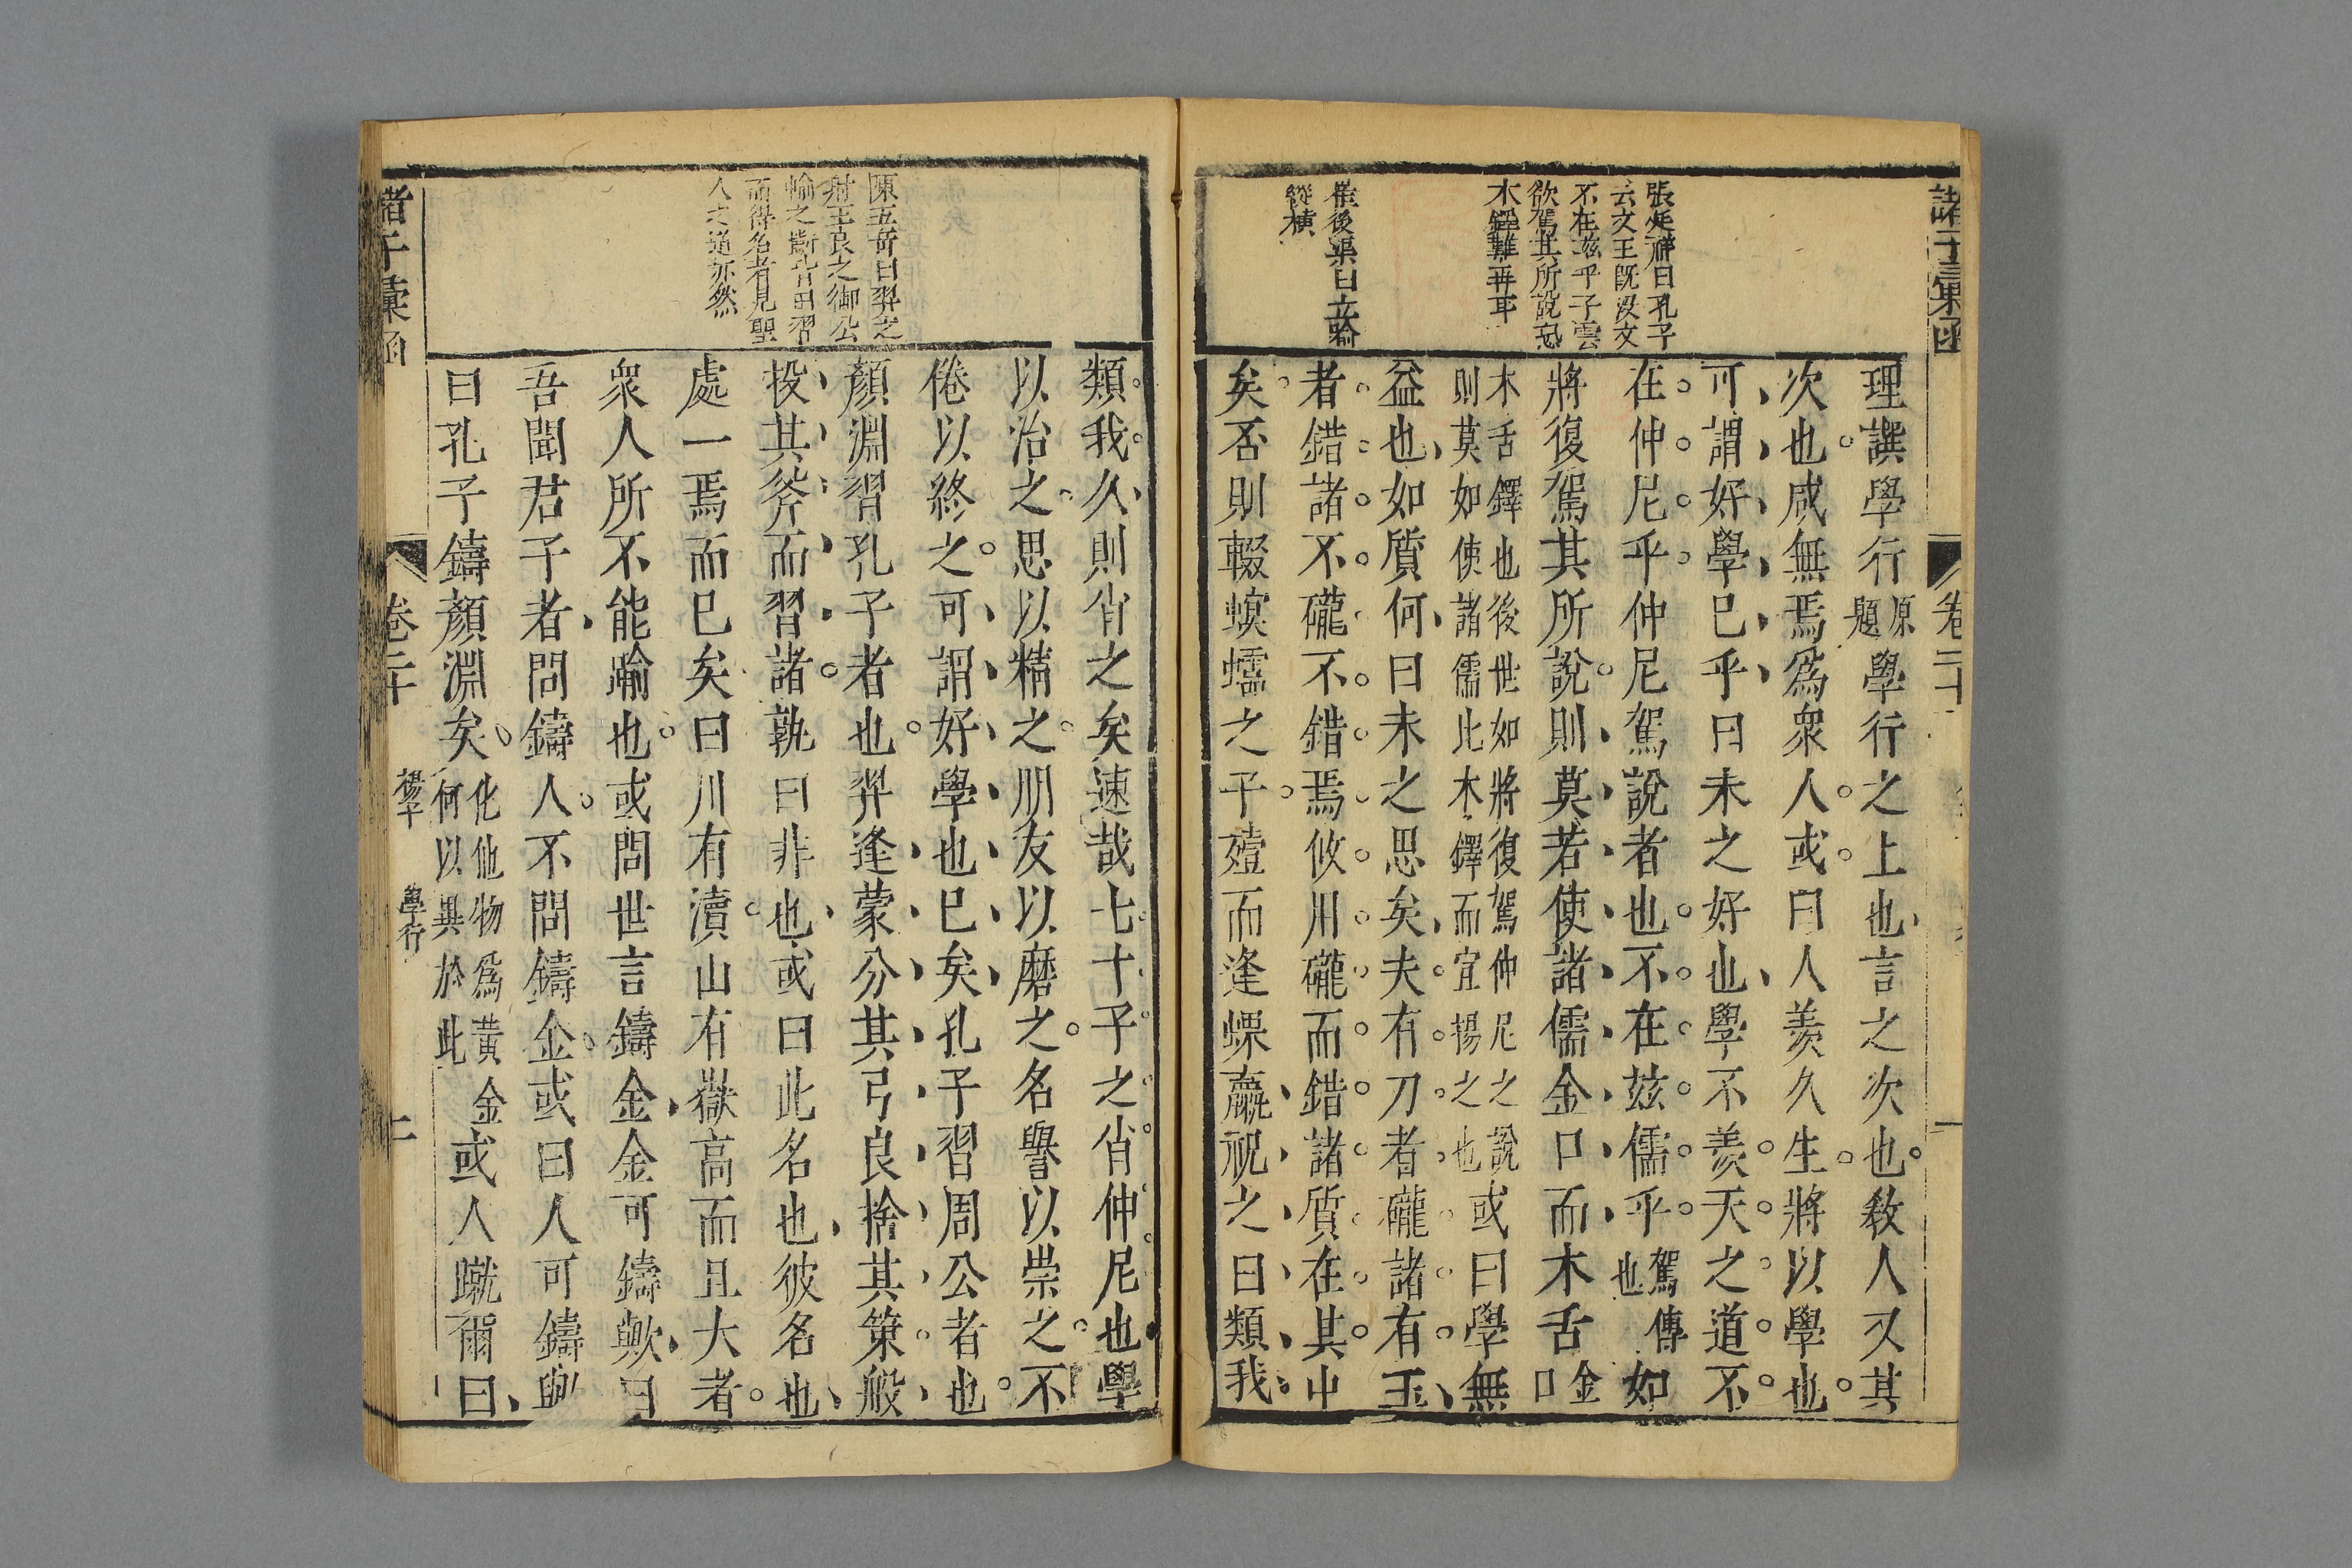 諸子彙函
卷二十
張廷祥曰孔子
云文王既没文
不在兹乎子雲
欲駕其所說恐
木鐸難再耳
崔後渠曰立喻
縱横
理譔學行原題學行之上也言之次也教人又其
次也咸無焉爲衆人或曰人羨久生將以學也
可謂好學已乎曰未之好也學不羨天之道不
在仲尼乎仲尼駕說者也不在兹儒乎駕傳也如
將復駕其所說則莫若使諸儒金口而木舌金口
木舌鐸也後世如將復駕仲尼之說
則莫如使諸儒比木鐸而宜揚之也
或曰學無
益也如質何曰未之思矣夫有刀者礲諸有玉
者錯諸不礲不錯焉攸用礲而錯諸質在其中
矣否則輟螟蠕之子殪而逢蜾蠃祝之曰類我
陳五岳曰羿之
射王良之御公
輸之斲皆因習
而得名者見聖
人之道亦然
類我久則肖之矣速哉七十子之肖仲尼也學
以治之思以精之朋友以磨之名譽以崇之不
倦以終之可謂好學也已矣孔子習周公者也
顏淵習孔子者也羿逢蒙分其弓良捨其策般
投其斧而習諸孰曰非也或曰此名也彼名也
處一焉而已矣曰川有瀆山有嶽高而且大者
衆人所不能踰也或問世言鑄金金可鑄歟曰
吾聞君子者問鑄人不問鑄金或曰人可鑄與
曰孔子鑄顏淵矣化他物爲黄金何以異於此或人踧爾曰
諸子彙函
卷二十
揚子
學行
二